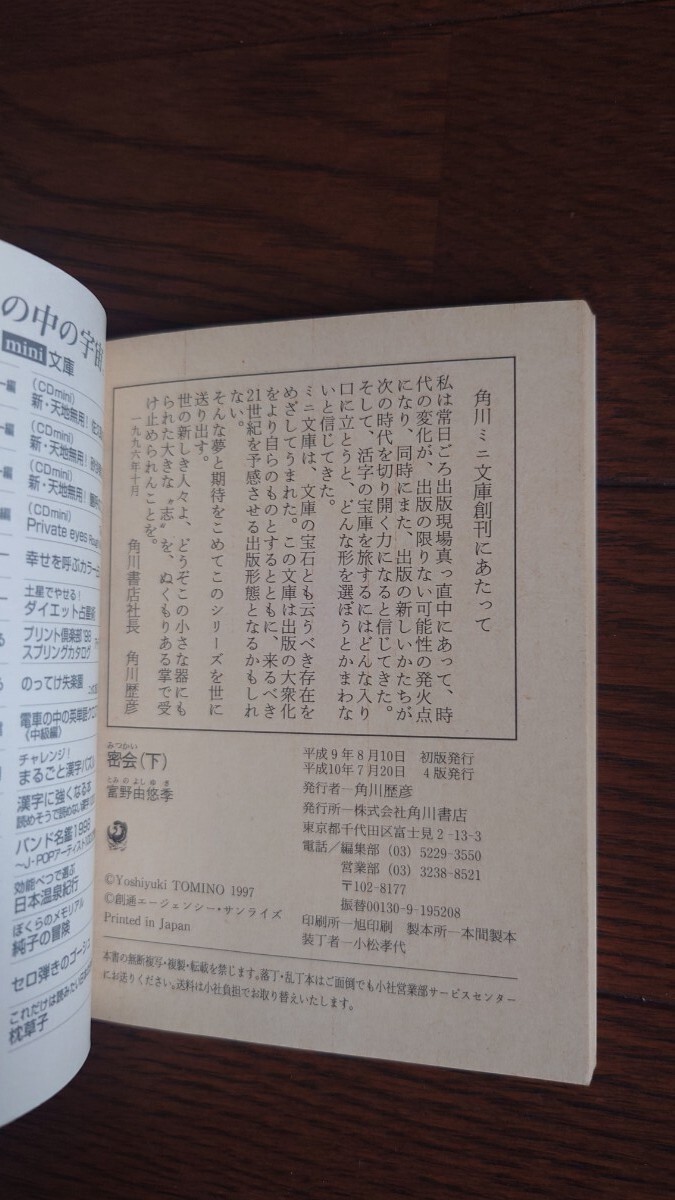 角川ミニ文庫創刊にあたって
私は常日ごろ出版現場真っ直中にあって、時
代の変化が、出版の限りない可能性の発火点
になり、同時にまた、出版の新しいかたちが
次の時代を切り開く力になると信じてきた。
そして、活字の宝庫を旅するにはどんな入り
口に立とうと、どんな形を選ぼうとかまわな
いと信じてきた。
ミニ文庫は、文庫の宝石とも云うべき存在を
めざしてうまれた。この文庫は出版の大衆化
をより自らのものとするとともに、来るべき
21世紀を予感させる出版形態となるかもしれ
ない。
そんな夢と期待をこめてこのシリーズを世に
送り出す。
世の新しき人々よ、どうぞこの小さな器にも
られた大きな〝志〟を、ぬくもりある掌で受
け止められんことを。
一九九六年十月
角川書店社長 角川歴彦
みつかい
密会(下)
とみのよしゆき
富野由悠季
平成9年8月10日 初版発行
平成10年7月20日 4版発行
発行者―角川歴彦
発行所―株式会社角川書店
東京都千代田区富士見2-13-3
電話/編集部 (03) 5229-3550
営業部 (03) 3238-8521
〒102-8177
振替00130-9-195208
印刷所―旭印刷 製本所―本間製本
装丁者―小松孝代
©Yoshiyuki TOMINO 1997
©創通エージェンシー・サンライズ
Printed in Japan
本書の無断複写・複製・転載を禁じます。落丁・乱丁本はご面倒でも小社営業部サービスセンター
にお送りください。送料は小社負担でお取り替えいたします。
の中の宇宙
mini文庫
(CDmini)
新・天地無用!
(CDmini)
新・天地無用!
(CDmini)
新・天地無用!
(CDmini)
Private eyes
幸せを呼ぶカラー
土星でやせる!
ダイエット占星術
プリント倶楽部'98
スプリングカタログ
のってけ失楽園
電車の中の英単語クロス
《中級編》
チャレンジ!
まるごと漢字パズル
漢字に強くなる本
バンド名鑑1998
～J・POPアーティスト
効能べつで選ぶ
日本温泉紀行
ぼくらのメモリアル
純子の冒険
セロ弾きのゴーシュ
これだけは読みたい
枕草子